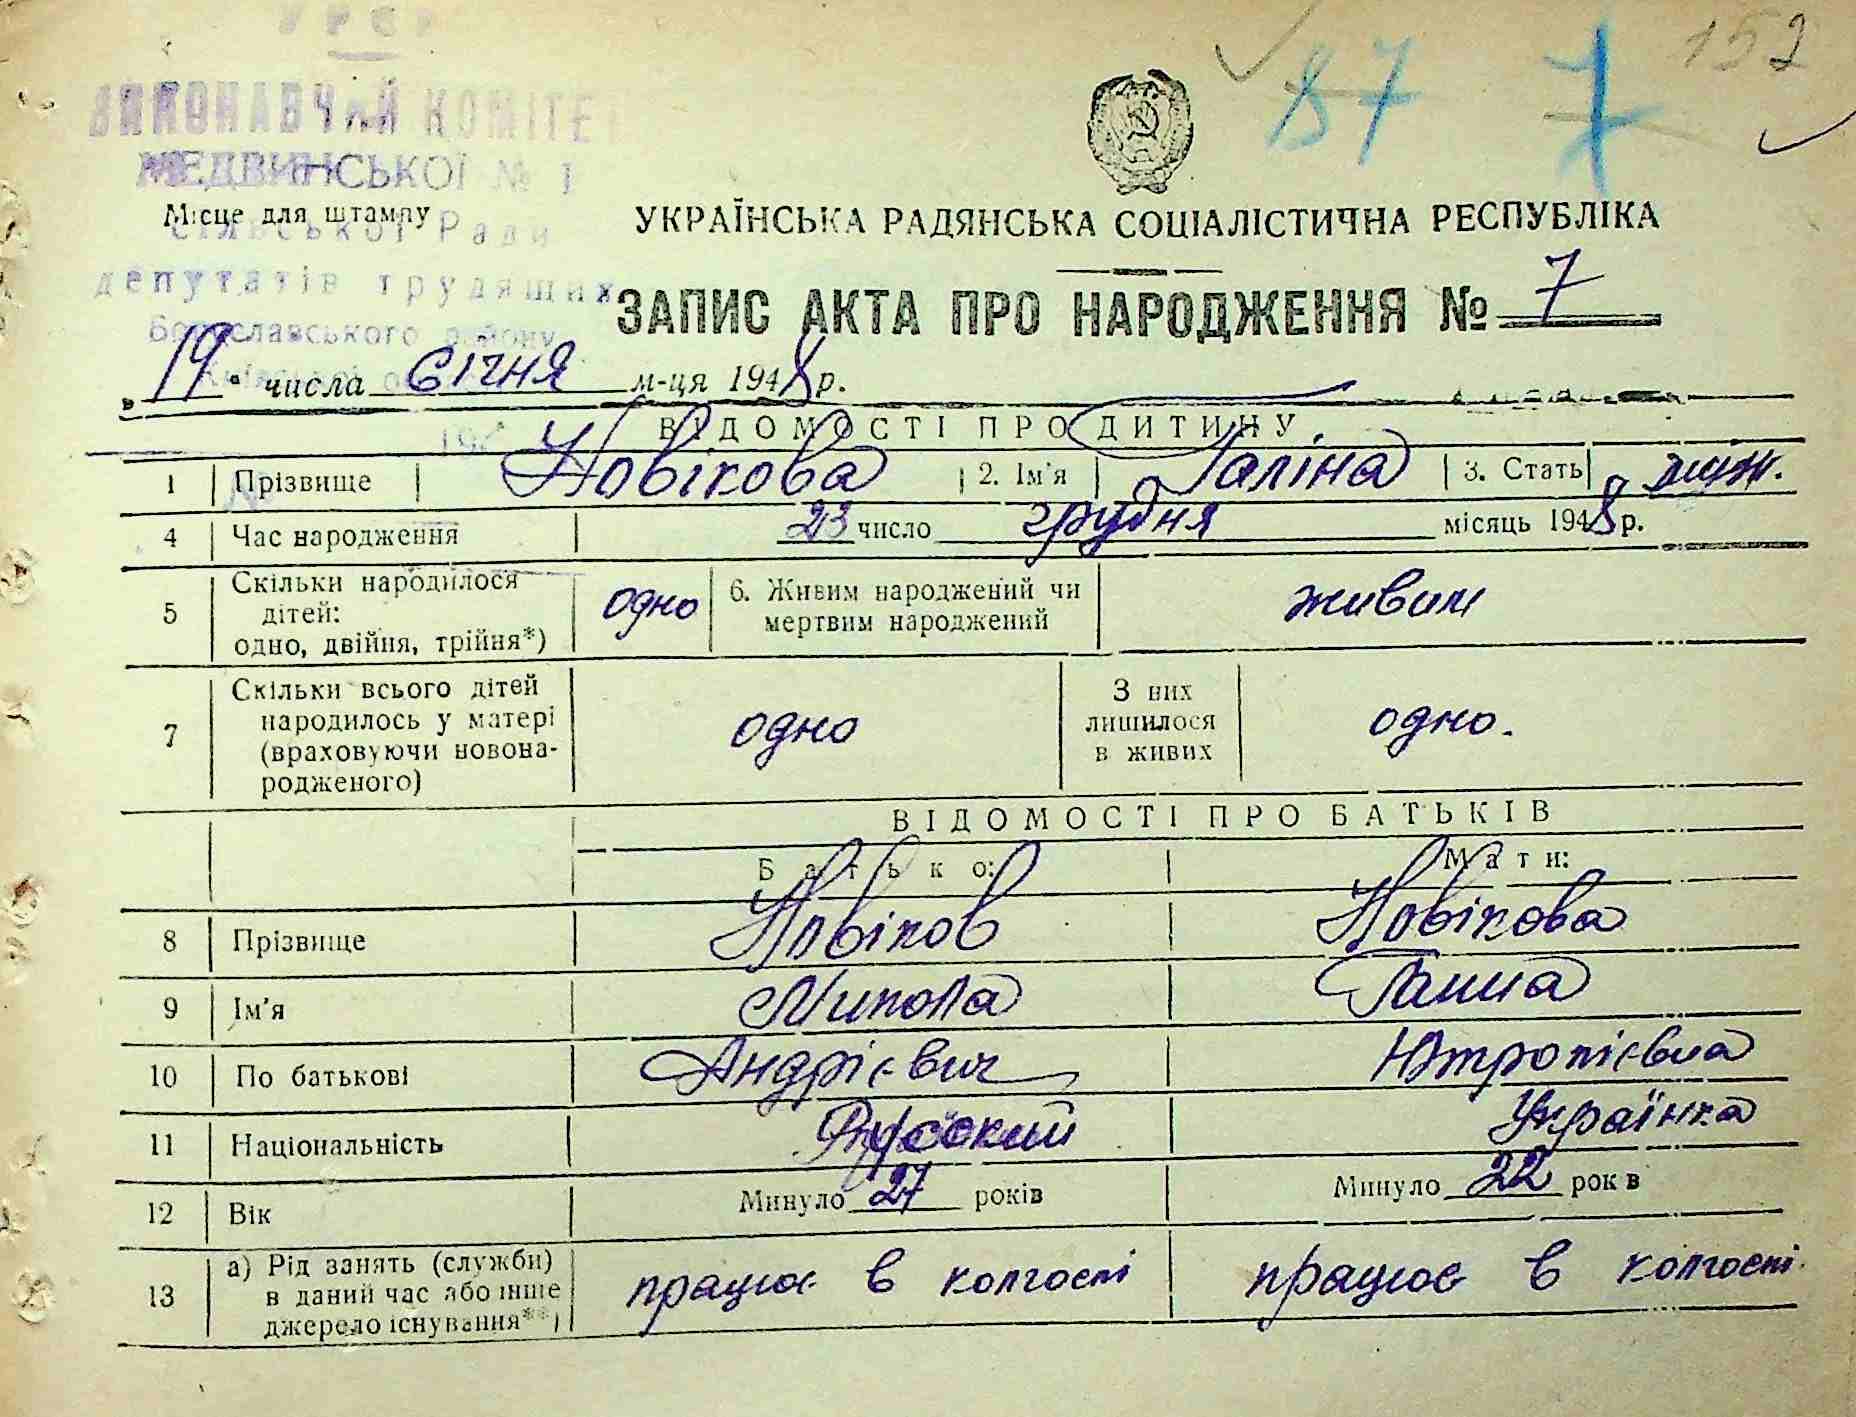 УРСР
ВИКОНАВЧИЙ КОМІТЕТ
МЕДВИНСЬКОЇ № 1
Сільської Ради
депутатів трудящих
Богуславського району
87 7 152
Місце для штампу
УКРАЇНСЬКА РАДЯНСЬКА СОЦІАЛІСТИЧНА РЕСПУБЛІКА
ЗАПИС АКТА ПРО НАРОДЖЕННЯ № 7
„19“ числа Січня м-ця 1948 р.
ВІДОМОСТІ ПРО ДИТИНУ
1 Прізвище Новікова 2. Ім'я Галіна 3. Стать жін.
4 Час народження 23 число грудня місяць 1948 р.
5 Скільки народилося дітей: одно, двійня, трійня*) одно 6. Живим народжений чи мертвим народжений живим
7 Скільки всього дітей народилось у матері (враховуючи новонародженого) одно З них лишилося в живих одно.
ВІДОМОСТІ ПРО БАТЬКІВ
Батько: Мати:
8 Прізвище Новіков Новікова
9 Ім'я Микола Ганна
10 По батькові Андрієвич Ютропієвна
11 Національність Русский Українка
12 Вік Минуло 27 років Минуло 22 рок в
13 а) Рід занять (служби) в даний час або інше джерело існування**) працює в колгоспі працює в колгоспі.